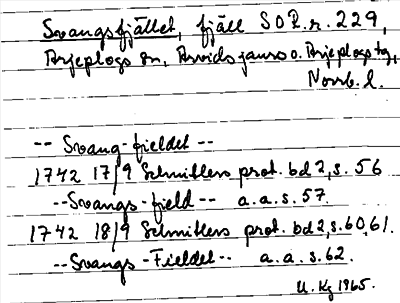 Svangsfjället, fjäll SO R.r. 229,
Arjeplogs sn, Arvidsjaurs o. Arjeplogs tg,
Norrb. l.
-- Svang-fieldet --
1742 17/9 Schnitlers prot. bd 2, s. 56
--Svangs-field-- a.a.s. 57.
1742 18/9 Schnitlers prot. bd 2, s. 60, 61.
--Svangs-Fieldet-- a.a.s. 62.
U. Kg 1965.